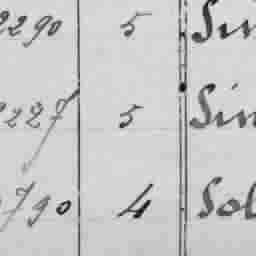 2290 5 Sin
2227 5 Sin
790 4 Sol